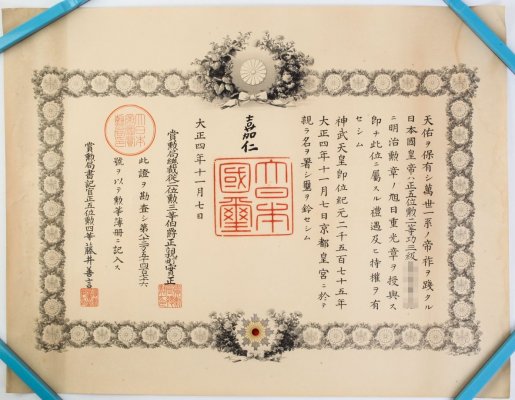 天佑ヲ保有シ萬世一系ノ帝祚ヲ踐タル
日本國皇帝ハ正五位勲二等功三級
ニ明治勲章ノ旭日重光章ヲ授與ス
即チ此位ニ屬スル禮遇及ヒ特權ヲ有
セシム
神武天皇即位紀元二千五百七十五年
大正四年十一月七日京都皇宮ニ於テ
親ラ名ヲ署シ璽ヲ鈐セシム
嘉仁
大日本國璽
大正四年十一月七日
賞勲局總裁從二位勲三等伯爵正親町實正
此證ヲ勘査シ第
號ヲ以テ勲等簿册ニ記入ス
賞勲局書記官正五位勲四等藤井善言